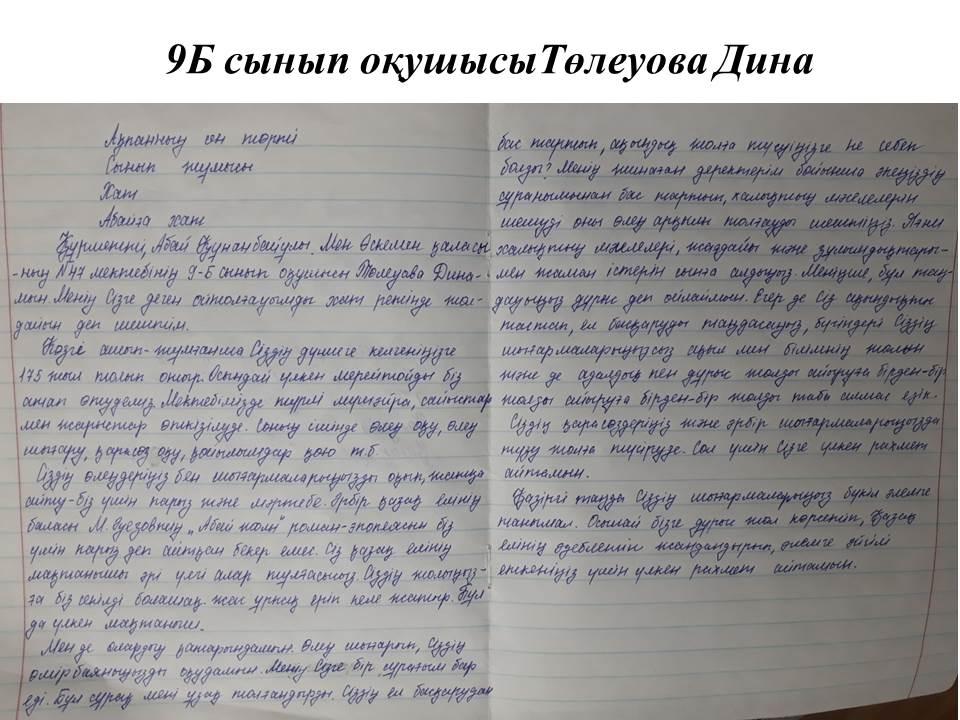 9Б сынып оқушысыТөлеуова Дина
Ақпанның он төрті
Сынып жұмысы
Хат
Абайға хат
Құрметті, Абай Құнанбайұлы. Мен Өскемен қаласы-
-ның №47 мектебінің 9-Б сынып оқушысы Төлеуова Дина-
мын. Менің Сізге деген айтолғауымды хат ретінде жол-
дайын деп шештім.
Көзге ашып-жұмғанша Сіздің дүниеге келгеніңізге
175 жыл толып отыр. Осындай үлкен мерейтойды біз
атап өтудеміз. Мектебімізде түрлі мушәйра, сайыстар
мен жарыстар өткізілуде. Соның ішінде өлең оқу, өлең
шығару, қарасөз оқу, қойылымдар қою т.б.
Сіздің өлеңдеріңіз бен шығармаларыңызды оқып, жатқа
айту-біз үшін парыз және мәртебе. Әрбір қазақ елінің
баласы М.Әуезовтің „Абай жолы" роман-эпопеясын біз
үшін парыз деп айтқан бекер емес. Сіз қазақ елінің
мақтанышы әрі үлгі алар тұлғасыз. Сіздің жолыңыз-
ға біз сенімді болашақ жас ұрпақ еріп келе жатыр. Бұл
да үлкен мақтаныш.
Мен де олардың қатарынданмын. Өлең шығарып, Сіздің
өмірбаяныңызды оқудамын. Менің Сізге бір сұрағым бар
еді. Бұл сұрақ мені ұзақ толғандырды. Сіздің ел басқарудан
бас тартып, ақындық жолға түсуіңізге не себеп
болды? Менің жинаған деректерім бойынша әкеңіздің
сұранымынан бас тартып, халықтың мәселелерін
шешуді оны өлең арқылы толғауды шештіңіз. Яғни
халықтың мәселелері, жағдайы және зұлымдықтары-
мен жаман істерін сынға алдыңыз. Меніңше, бұл таң-
дауыңыз дұрыс деп ойлаймын. Егер де Сіз ақындықты
тастап, ел басқаруды таңдасаңыз, бүгіндері Сіздің
шығармаларыңызсыз ақыл мен білімнің жолын
және де адалдық пен дұрыс жолды айыруға бірден-бір
жолды айыруға бірден-бір жолды таба алмас едік.
Сіздің қарасөздеріңіз және әрбір шығармаларыңызда
түзу жолға түсіруде. Сол үшін Сізге үлкен рахмет
айтамын.
Қазіргі таңда Сіздің шығармаларыңыз бүкіл әлемге
танымал. Осылай бізге дұрыс жол көрсетіп, Қазақ
елінің әдебиетін жандандырып, әлемге әйгілі
еткеніңіз үшін үлкен рахмет айтамын.